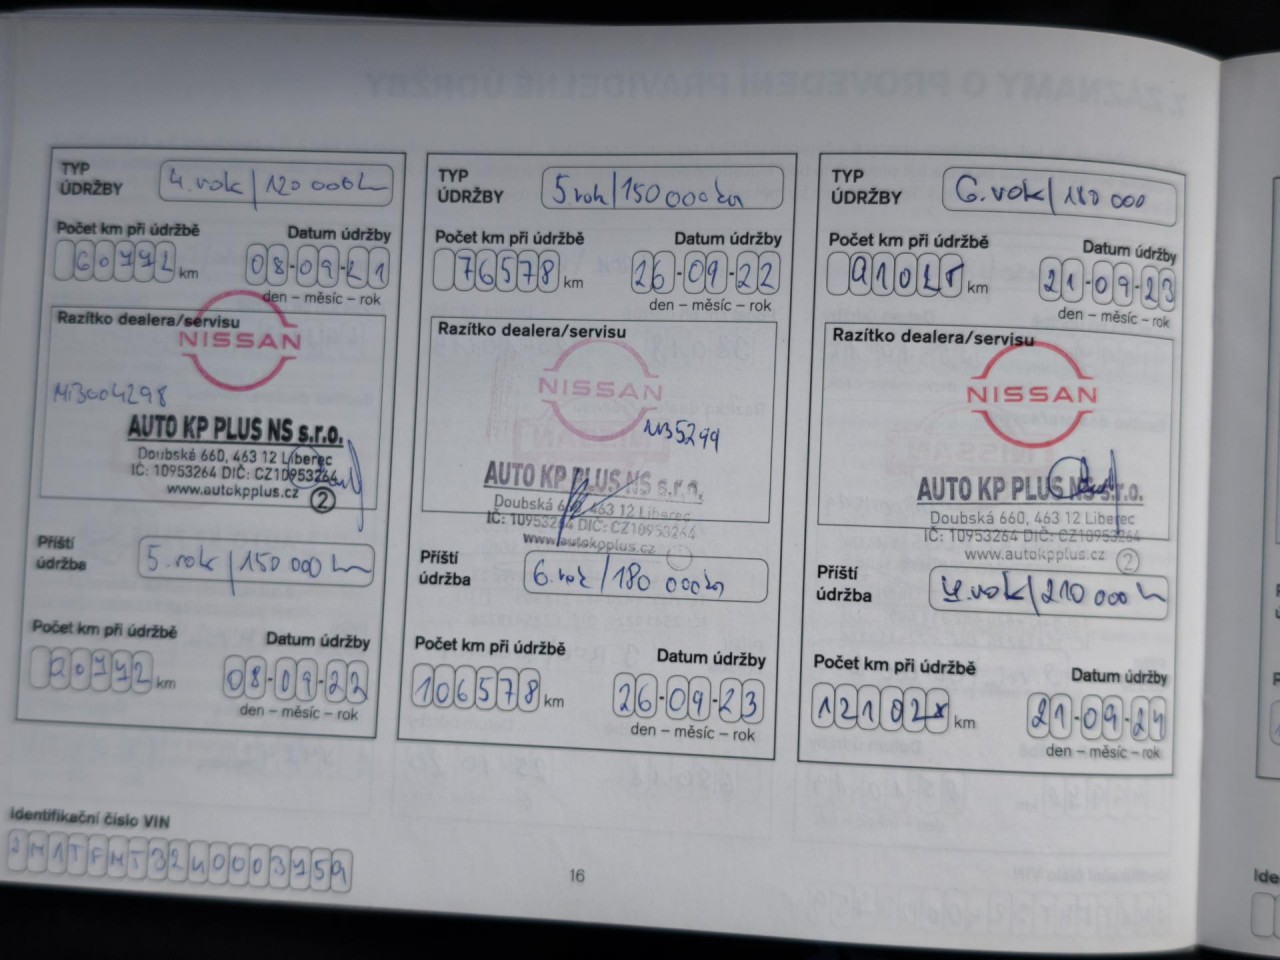 TYP ÚDRŽBY 4. rok / 120 000 km
Počet km při údržbě
Datum údržby
60772 km
08-09-21
den – měsíc – rok
Razítko dealera/servisu
NISSAN
AUTO KP PLUS NS s.r.o.
Doubská 660, 463 12 Liberec
IČ: 10953264 DIČ: CZ10953264
www.autokpplus.cz 2
Příští údržba 5. rok / 150 000 km
Počet km při údržbě
Datum údržby
90772 km
08-09-22
den – měsíc – rok
TYP ÚDRŽBY 5 rok / 150 000 km
Počet km při údržbě
Datum údržby
76578 km
26-09-22
den – měsíc – rok
Razítko dealera/servisu
NISSAN
AUTO KP PLUS NS s.r.o.
Doubská 660, 463 12 Liberec
IČ: 10953264 DIČ: CZ10953264
www.autokpplus.cz
Příští údržba 6. rok / 180 000 km
Počet km při údržbě
Datum údržby
106578 km
26-09-23
den – měsíc – rok
TYP ÚDRŽBY 6. rok / 180 000
Počet km při údržbě
Datum údržby
km
21-09-23
den – měsíc – rok
Razítko dealera/servisu
NISSAN
AUTO KP PLUS NS s.r.o.
Doubská 660, 463 12 Liberec
IČ: 10953264 DIČ: CZ10953264
www.autokpplus.cz 2
Příští údržba 7. rok / 210 000 km
Počet km při údržbě
Datum údržby
km
21-09-24
den – měsíc – rok
Identifikační číslo VIN
16